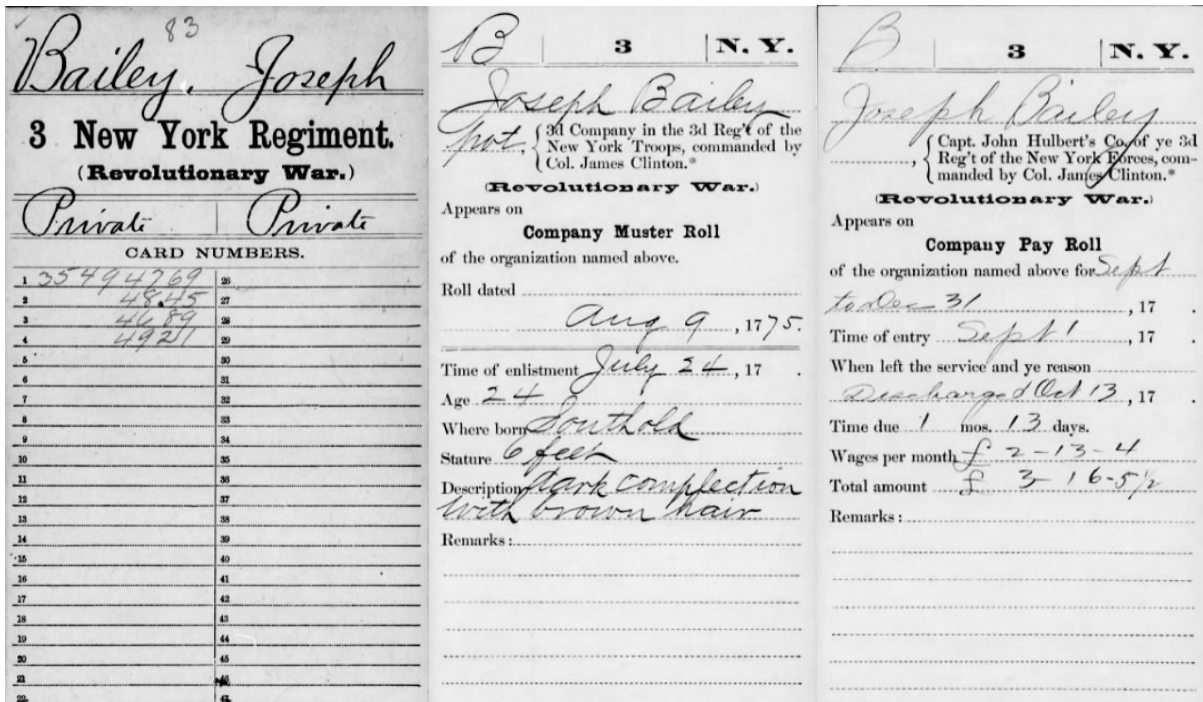 83
Bailey, Joseph
3 New York Regiment.
(Revolutionary War.)
Private | Private
CARD NUMBERS.
1 35494769 26
2 4845 27
3 4689 28
4 4921 29
5 30
6 31
7 32
8 33
9 34
10 35
11 36
12 37
13 38
14 39
15 40
16 41
17 42
18 43
19 44
20 45
21 46
22
B | 3 | N. Y.
Joseph Bailey
pvt, { 3d Company in the 3d Reg't of the
New York Troops, commanded by
Col. James Clinton.*
(Revolutionary War.)
Appears on
Company Muster Roll
of the organization named above.
Roll dated
Aug 9, 1775.
Time of enlistment July 24, 17 .
Age 24
Where born Southold
Stature 6 feet
Description dark complection
with brown hair
Remarks:
B | 3 | N. Y.
Joseph Bailey
, { Capt. John Hulbert's Co. of ye 3d
Reg't of the New York Forces, com-
manded by Col. James Clinton.*
(Revolutionary War.)
Appears on
Company Pay Roll
of the organization named above for Sept
to Dec 31, 17 .
Time of entry Sept 1, 17 .
When left the service and ye reason
Discharged Oct 13, 17 .
Time due 1 mos. 13 days.
Wages per month £ 2-13-4
Total amount £ 3-16-5½
Remarks: